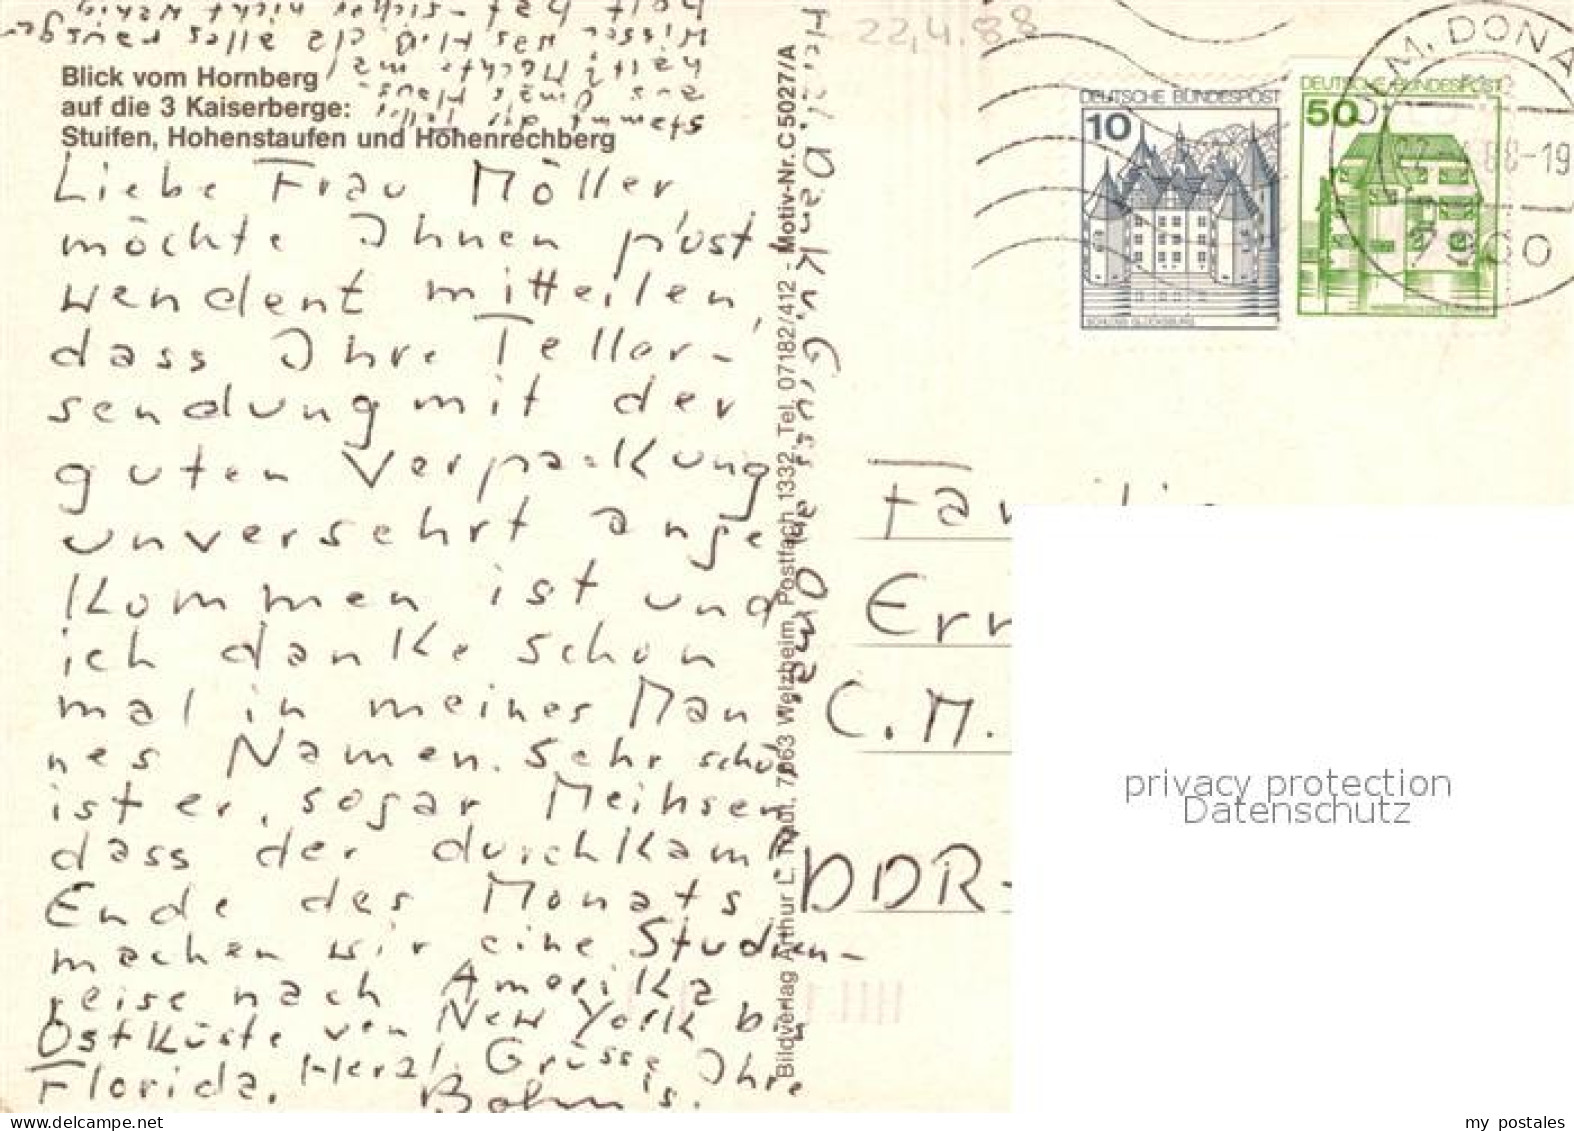 22.4.88
Blick vom Hornberg
auf die 3 Kaiserberge:
Stuifen, Hohenstaufen und Hohenrechberg
Liebe Frau Möller,
möchte Ihnen post
wendent mitteilen,
dass Ihre Teller-
sendung mit der
guten Verpackung
unversehrt ange
kommen ist und
ich danke schon
mal in meines Man
nes Namen. Sehr schön
ist er, sogar Meihsen
dass der durchkam
Ende des Monats
machen wir eine Studien-
reise nach Amerika
Ostküste von New York bis
Florida. Herzl. Grüsse Ihre
Bohm's.
stammt der Teller
aus Oma's Haus
Bildverlag Arthur L. Traut, 7063 Welzheim, Postfach 1332, Tel. 07182/412 - Motiv-Nr. C 5027/A
DEUTSCHE BUNDESPOST
10
SCHLOSS GLÜCKSBURG
DEUTSCHE BUNDESPOST
50
ULM, DONA
88-19
7900
Err
C.M.
DDR-
privacy protection
Datenschutz
www.delcampe.net
my postales